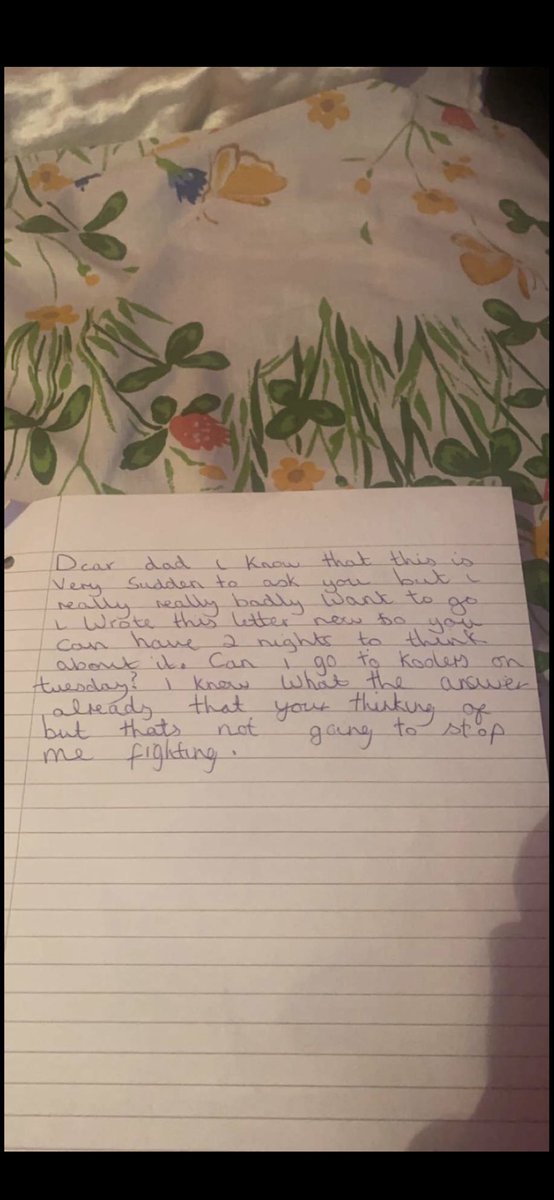 Dear dad i know that this is
very sudden to ask you but i
really really badly want to go
i wrote this letter now so you
can have 2 nights to think
about it. Can i go to Koolers on
tuesday? I know what the answer
already that your thinking of
but thats not going to stop
me fighting.